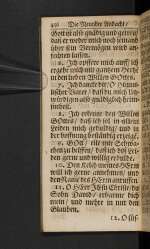 Die Neundte Andacht/
Gott ist also gnädig und gerecht
daß er weder mich noch jemand
über sein Vermögen wird
lassen.
6. Ich opffere mich auff/ ich
ergebe mich mit gantzem Hertzen
in den lieben Willen Gottes.
7. Ich dancke dir/ O himm-
lischer Vater/ daß du mich
würdigest also gnädiglich heim
suchest.
8. Ich erkenne den Willen
Gottes/ daß ich sol in
Leiden mich gedultig/ und in
der hoffnung beständig
9. Gott/ eile mir Schwa-
chen zu helffen/ daß ich das Lei-
den gerne und willig erdulde.
10. Den Kelch meines HErrn
wil ich gerne annehmen/ und
den Name des HErrn anruffen.
11. O HErr JEsu Christe du
Sohn David/ erbarme dich
mein/ und mehre in mir den
Glauben.
12. O süs-